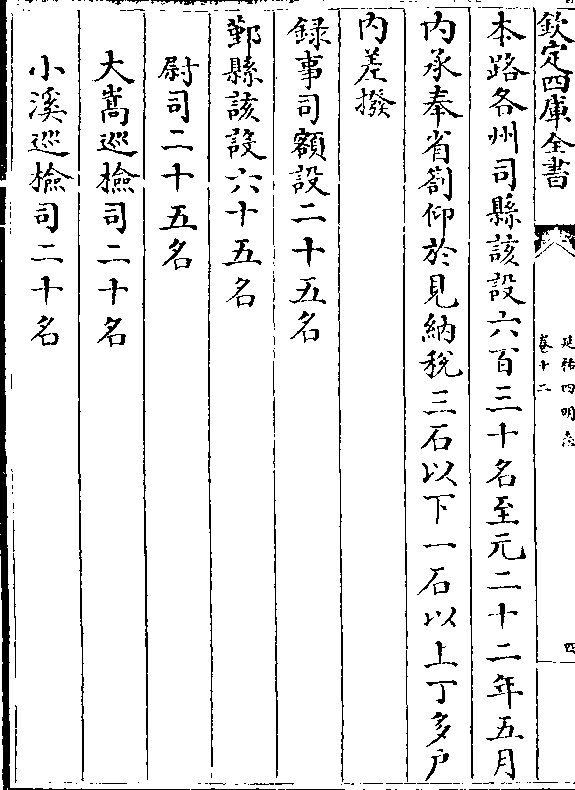 欽定四庫全書
延祐四明志
卷十二
四
本路各州司縣該設六百三十名至元二十二年五月
内承奉省劄仰於見納税三石以下一石以上丁多户
内差撥
録事司額設二十五名
鄞縣該設六十五名
尉司二十五名
大嵩廵檢司二十名
小溪廵檢司二十名